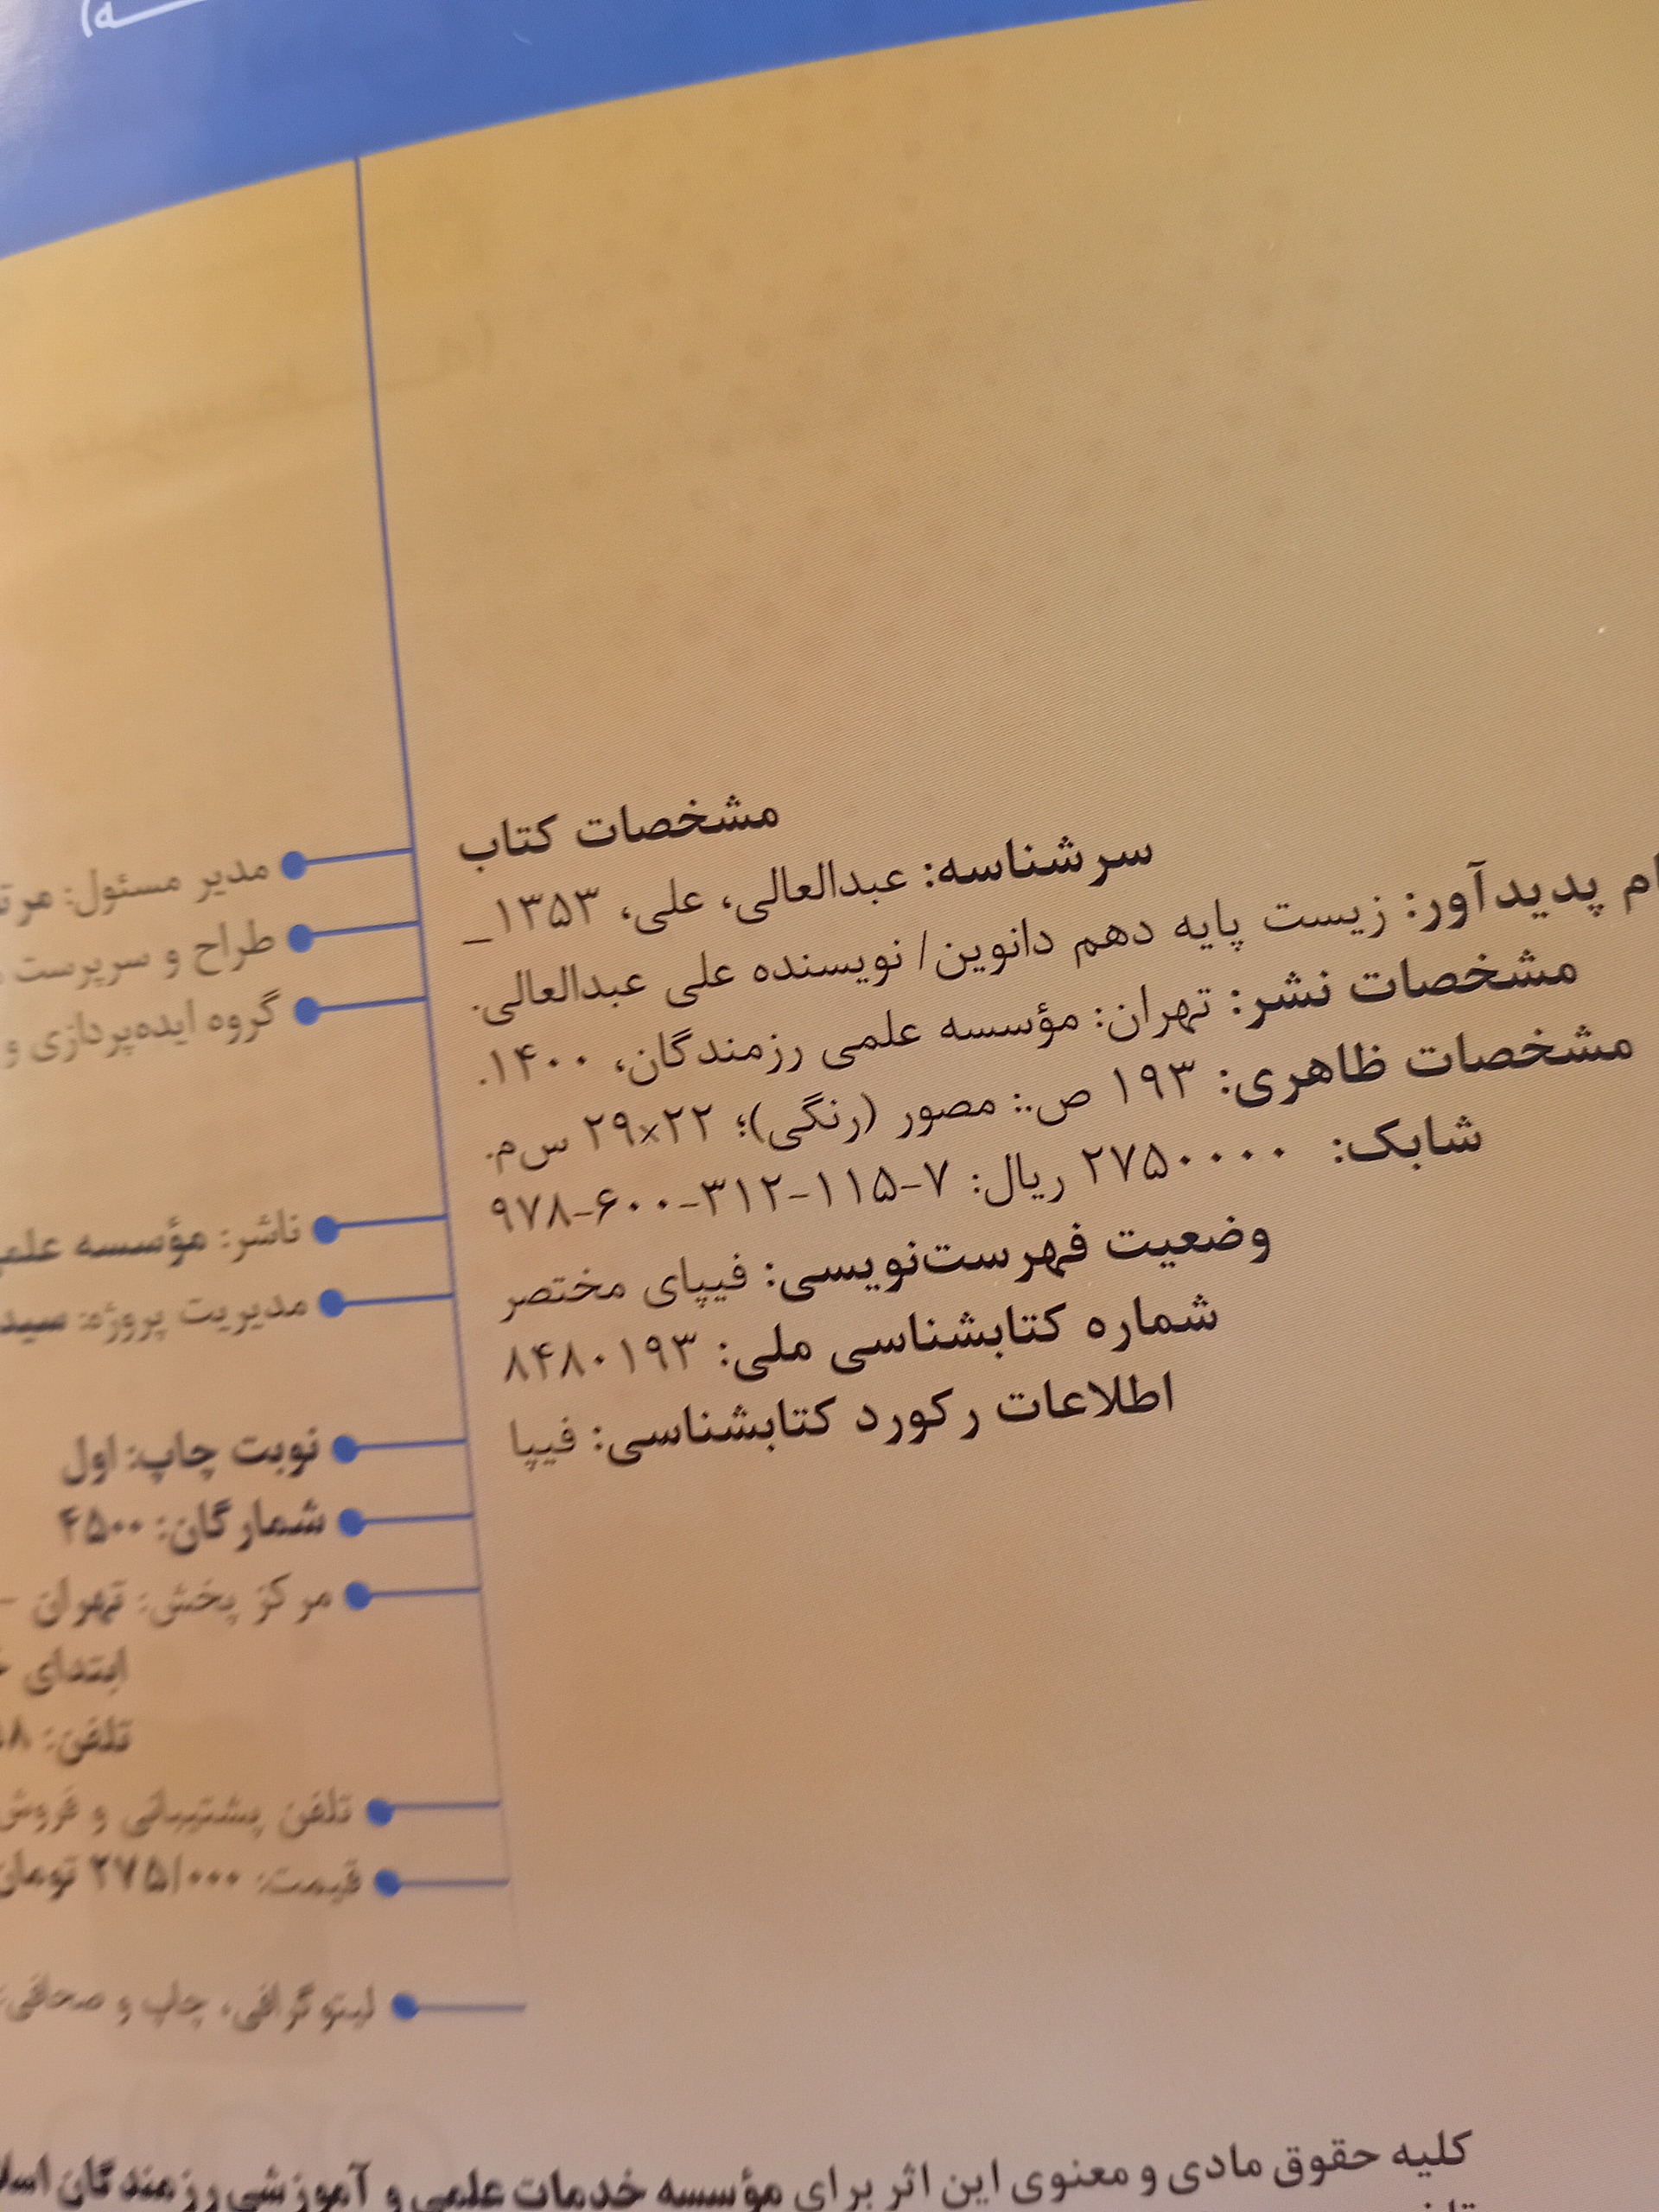 مشخصات کتاب
سرشناسه: عبدالعالی، علی، ۱۳۵۳_
پدیدآور: زیست پایه دهم دانوین/ نویسنده علی عبدالعالی.
مشخصات نشر: تهران: مؤسسه علمی رزمندگان، ۱۴۰۰.
مشخصات ظاهری: ۱۹۳ ص.: مصور (رنگی)؛ ۲۲×۲۹ س‌م.
شابک: ۲۷۵۰۰۰۰ ریال: ۷-۱۱۵-۳۱۲-۶۰۰-۹۷۸
وضعیت فهرست‌نویسی: فیپای مختصر
شماره کتابشناسی ملی: ۸۴۸۰۱۹۳
اطلاعات رکورد کتابشناسی: فیپا
مدیر مسئول:
طراح و سرپرست
گروه ایده‌پردازی و
ناشر: مؤسسه
مدیریت پروژه: سید
نوبت چاپ: اول
شمارگان: ۴۵۰۰
مرکز پخش: تهران -
ابتدای
تلفن:
تلفن پشتیبانی و فروش
قیمت: ۲۷۵/۰۰۰ تومان
لیتوگرافی، چاپ و صحافی:
کلیه حقوق مادی و معنوی این اثر برای مؤسسه خدمات علمی و آموزشی رزمندگان